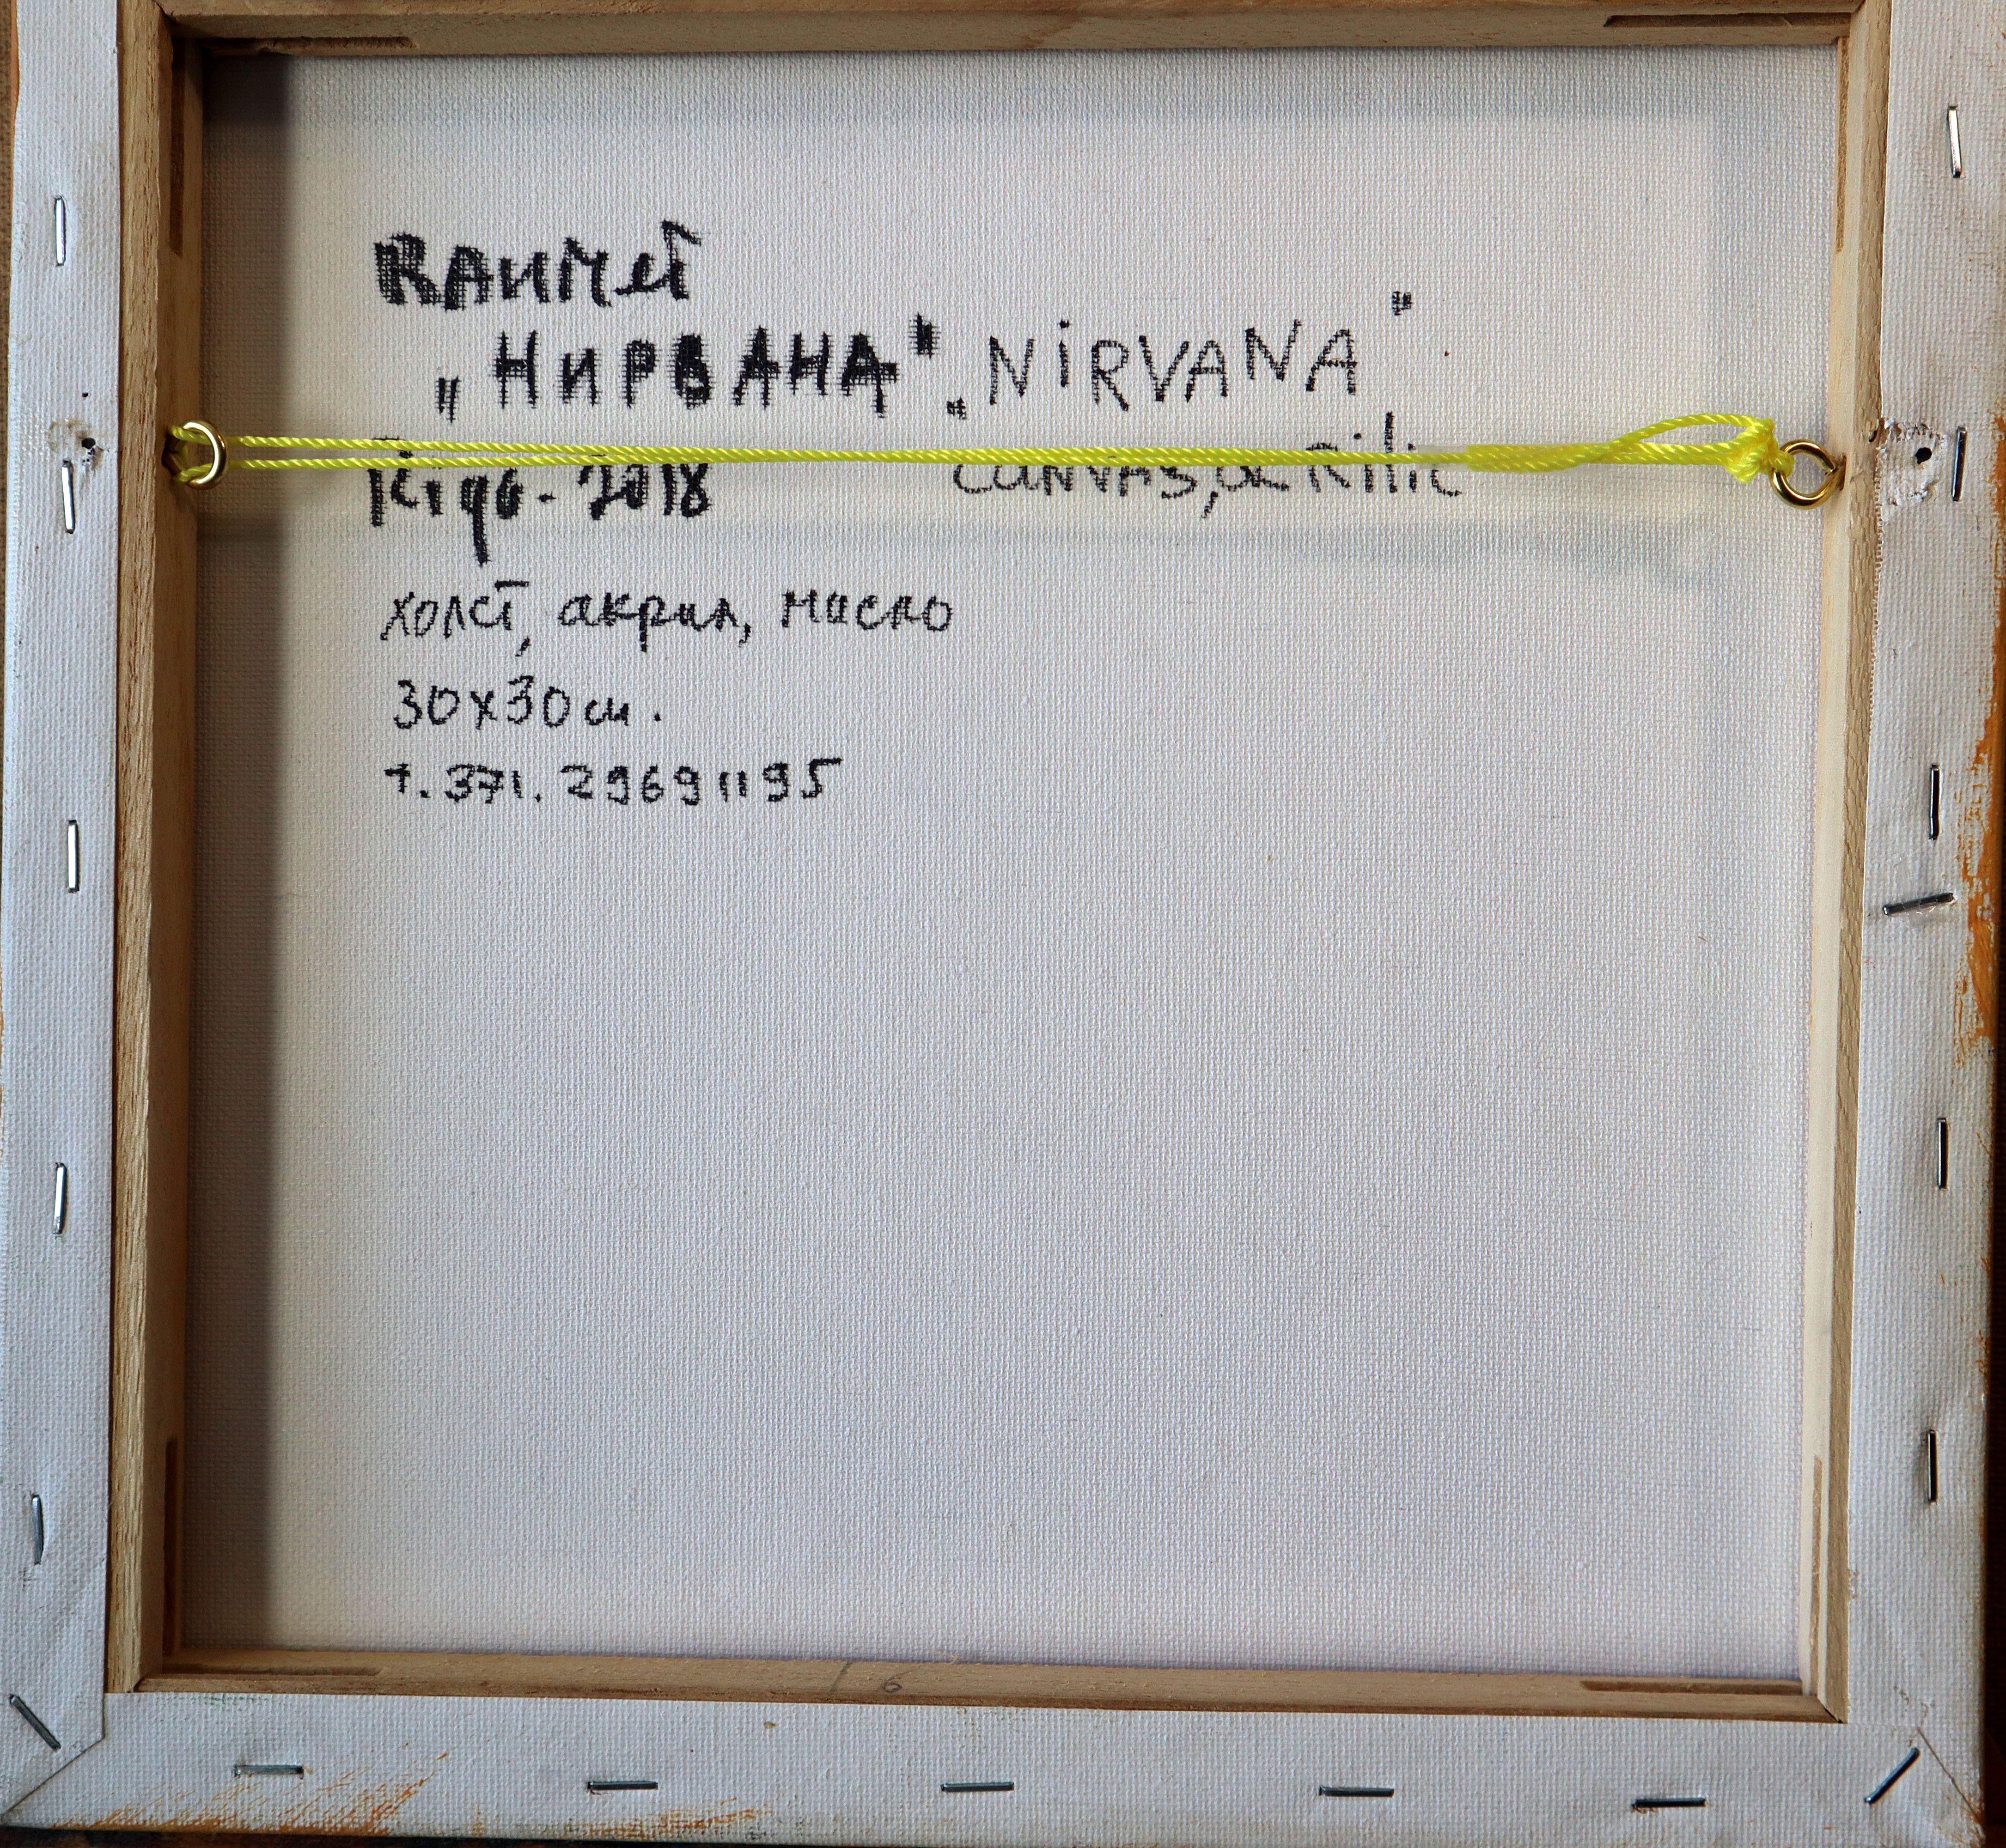 RAUMET
„НИРВАНА" „NIRVANA"
Riga - 2018 CANVAS,
холст, акрил, масло
30x30 см.
т. 371. 29691195
6